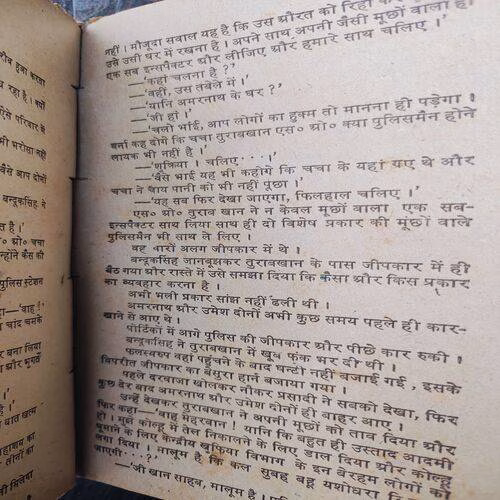 नहीं। मौजूदा सवाल यह है कि उस औरत को रिहा
उसे उसी घर में रखना है। अपने साथ अपनी जैसी मूछों वाला
एक सब इन्सपैक्टर और लीजिए और हमारे साथ चलिए।'
—'कहां चलना है?'
—'वहीं, उस तबेले में।'
—'यानि अमरनाथ के घर?'
—'जी हां।'
—'चलो भाई, आप लोगों का हुक्म तो मानना ही पड़ेगा।
वर्ना कह दोगे कि चचा तुराबखान एस० ओ० क्या पुलिसमैन होने
लायक भी नहीं है।'
—'शुक्रिया। चलिए····।'
—'वैसे भाई यह भी कहोगे कि चचा के यहां गए थे और
चचा ने चाय पानी को भी नहीं पूछा।'
—'यह सब फिर देखा जाएगा, फिलहाल चलिए।'
एस० ओ० तुराब खान ने न केवल मूछों वाला एक सब-
इन्सपैक्टर साथ लिया साथ ही दो विशेष प्रकार की मूंछों वाले
पुलिसमैन भी साथ ले लिए।
वह चारों अलग जीपकार में थे।
बन्दूकसिंह जानबूझकर तुराबखान के पास जीपकार में ही
बैठ गया और रास्ते में उसे समझा दिया कि कैसा और किस प्रकार
का व्यवहार करना है।
अभी भली प्रकार सांझ नहीं ढली थी।
अमरनाथ और उमेश दोनों अभी कुछ समय पहले ही कार-
खाने से आए थे।
पोर्टिको में आगे पुलिस की जीपकार और पीछे कार रुकी।
बन्दूकसिंह ने तुराबखान में खूब फूंक भर दी थी।
फलस्वरुप वहां पहुंचने के बाद घन्टी नहीं बजाई गई, इसके
विपरीत जीपकार का बेसुरा हार्न बजाया गया।
पहले दरवाजा खोलकर नौकर प्रसादी ने सबको देखा, फिर
कुछ देर बाद अमरनाथ और उमेश दोनों ही बाहर आए।
उन्हें देखकर तुराबखान ने अपनी मूछों को ताव दिया और
फिर कहा—'वाह महरबान! यानि कि बहुत ही उस्ताद आदमी
हो। मुझे कोल्हू में तेल निकालने के लिए डाल दिया और कोल्हू
घुमाने के लिए केन्द्रीय खुफिया विभाग के इन बेरहम लोगों को
लगा दिया। मालूम है कि कल सुबह बहू यशोधरा
जाएगी····?'
—'जी खान साहब, मालूम है।
हुआ करता
रहा है।
ऐसे परिवार में
भरोसा नहीं
आप दोनों
बन्दूकसिंह ने
है।'
ओ० चचा
उन्होंने कैस की
पुलिस स्टेशन
—'वाह!
चांद चमके
बना लिया
और भुगतें
बात खत्म
महाशय का
—तीनों का